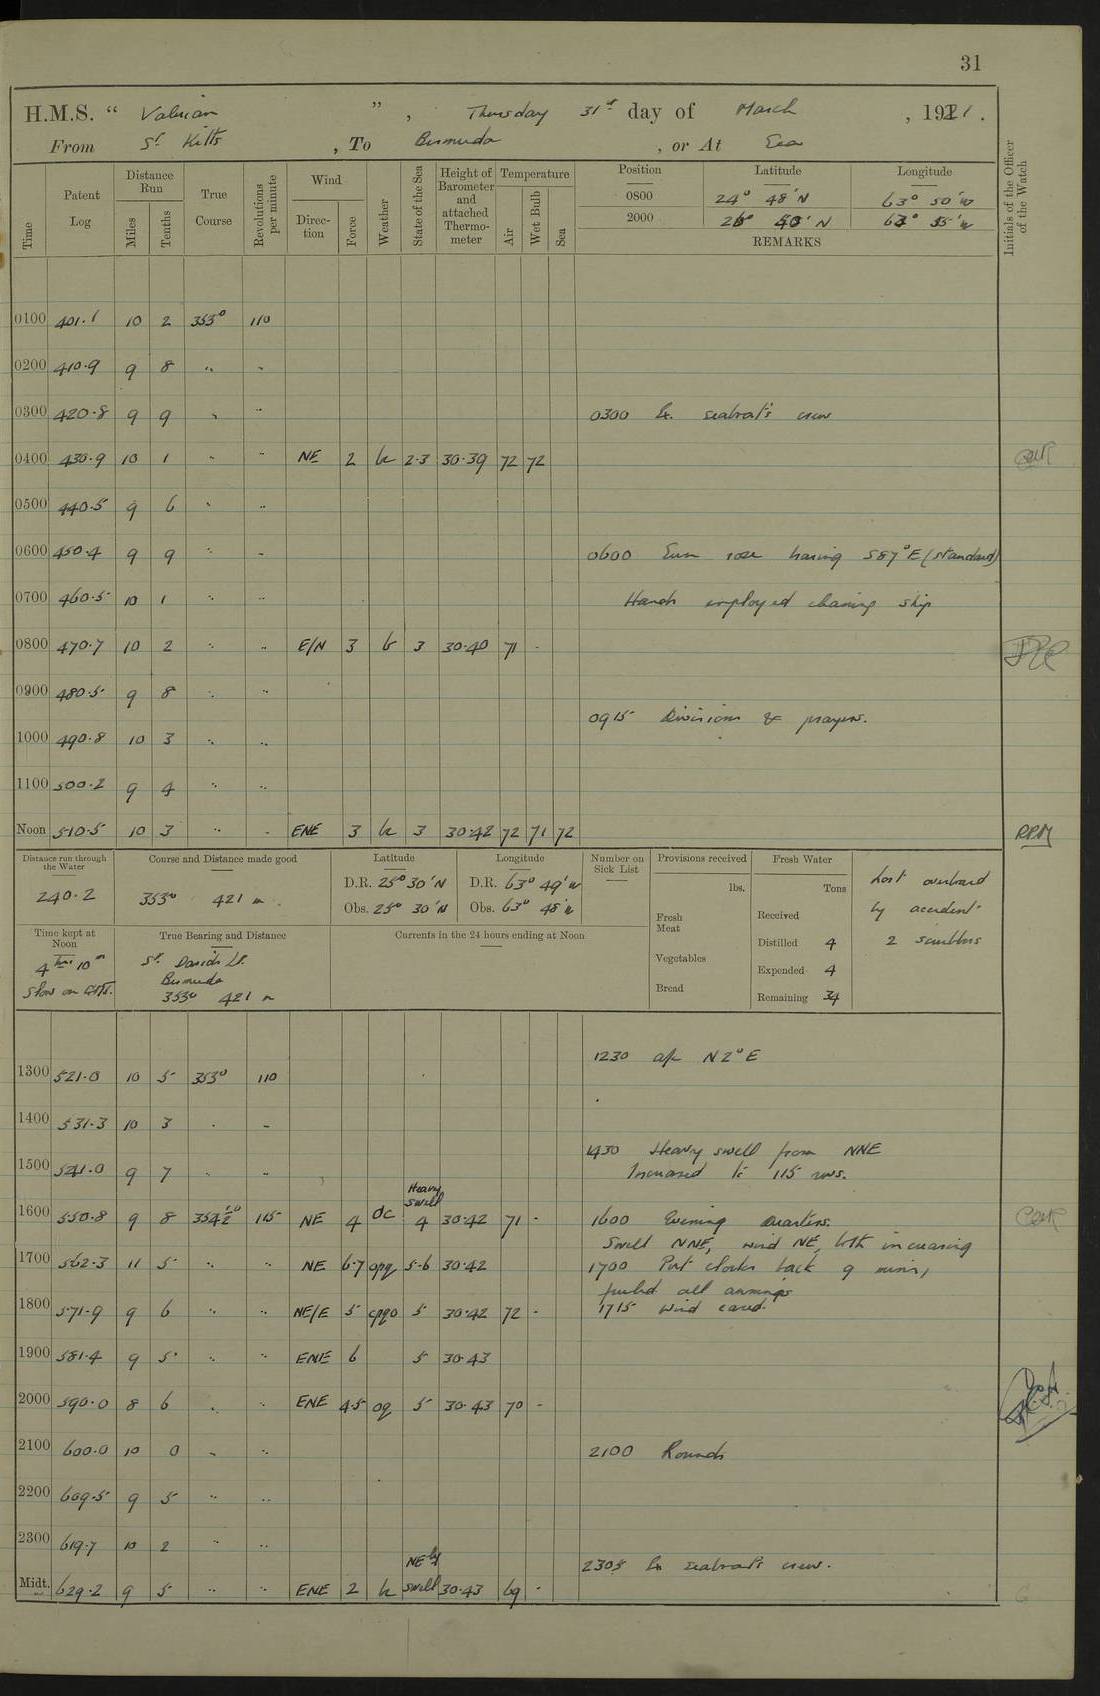 31
H.M.S. " Valerian ", Thursday 31st day of March, 1921.
From St Kitts, To Bermuda, or At Sea
Time
Patent Log
Distance Run
Miles
Tenths
True Course
Revolutions per minute
Wind
Direction
Force
Weather
State of the Sea
Height of Barometer and attached Thermometer
Temperature
Air
Wet Bulb
Sea
Position Latitude Longitude
0800 24° 48'N 63° 50'W
2000 26° 50'N 63° 55'W
REMARKS
Initials of the Officer of the Watch
0100 401.1 10 2 353° 110
0200 410.9 9 8 " "
0300 420.8 9 9 " " 0300 Ex. seaboat's crew
0400 430.9 10 1 " " NE 2 bc 2-3 30.39 72 72
0500 440.5 9 6 " "
0600 450.4 9 9 " " 0600 Sun rose bearing S87°E (standard)
0700 460.5 10 1 " " Hands employed cleaning ship
0800 470.7 10 2 " " E/N 3 b 3 30.40 71 -
0900 480.5 9 8 " "
0915 Divisions & prayers.
1000 490.8 10 3 " "
1100 500.2 9 4 " "
Noon 510.5 10 3 " " ENE 3 bc 3 30.42 72 71 72 RPM
Distance run through the Water
240.2
Course and Distance made good
353° 421 m.
Latitude
D.R. 25° 30'N
Obs. 25° 30'N
Longitude
D.R. 63° 49'W
Obs. 63° 48'W
Number on Sick List
Provisions received
lbs.
Fresh Meat
Vegetables
Bread
Fresh Water
Tons
Received
Distilled 4
Expended 4
Remaining 34
Lost overboard
by accident
2 scrubbers
Time kept at Noon
4 hrs 10 m
slow on GMT.
True Bearing and Distance
St. Davids Lt.
Bermuda
353° 421 m
Currents in the 24 hours ending at Noon
1230 a/c N2°E
1300 521.0 10 5 353° 110
1400 531.3 10 3 " "
1430 Heavy swell from NNE
1500 541.0 9 7 " " Increased to 115 revs.
Heavy swell
1600 550.8 9 8 354½° 115 NE 4 oc 4 30.42 71 - 1600 Evening Quarters.
Swell NNE, wind NE, both increasing
1700 562.3 11 5 " " NE 6-7 opq 5-6 30.42 1700 Put clocks back 9 mins,
furled all awnings
1800 571.9 9 6 " " NE/E 5 cpqo 5 30.42 72 - 1715 Wind eased.
1900 581.4 9 5 " " ENE 6 5 30.43
2000 590.0 8 6 " " ENE 4-5 oq 5 30.43 70 -
2100 600.0 10 0 " " 2100 Rounds
2200 609.5 9 5 " "
2300 619.7 10 2 " "
2305 Ex seaboat's crew.
NE'ly
Midt. 629.2 9 5 " " ENE 2 bc swell 30.43 69 -